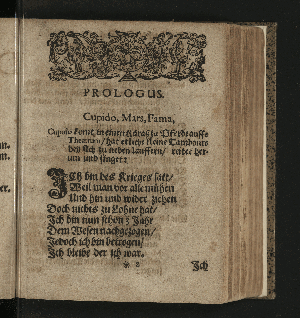 PROLOGUS.
Cupido, Mars, Fama,
Cupido kömt in einer Karatze zu Pferde auffs
Theatrum / hat etliche kleine Tambours
bey sich zu neben lauffern / reitet her-
um und singet:
ICh bin des Krieges satt /
Weil man vor alle mühen
Und hin und wider ziehen
Doch nichts zu Lohne hat /
Ich bin nun schon 5 Jahr
Dem Wesen nachgezogen /
Jedoch ich bin betrogen /
Ich bleibe der ich war.
Ich
rn.
rn.
er.